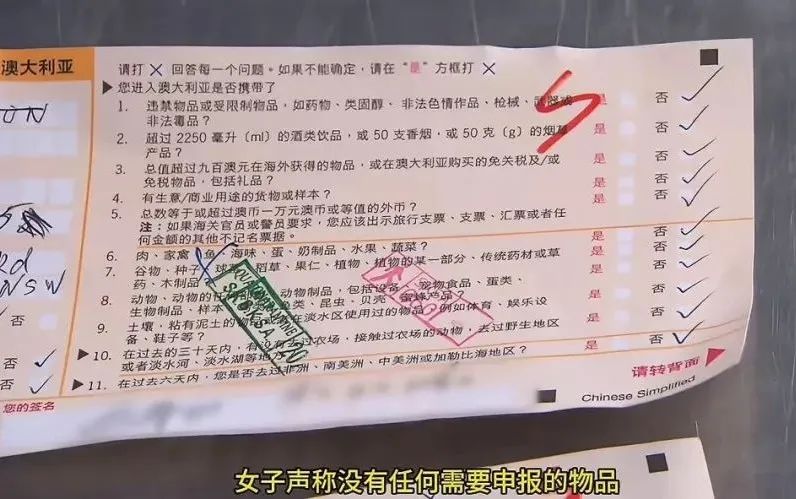 澳大利亚
请打 X 回答每一个问题。如果不能确定，请在“是”方框打 X
▶ 您进入澳大利亚是否携带了
1. 违禁物品或受限制物品，如药物、类固醇、非法色情作品、枪械、武器或
非法毒品？
是 否
2. 超过 2250 毫升 (ml) 的酒类饮品，或 50 支香烟，或 50 克 (g) 的烟草
产品？
是 否
3. 总值超过九百澳元在海外获得的物品，或在澳大利亚购买的免关税及/或
免税物品，包括礼品？
是 否
4. 有生意/商业用途的货物或样本？
是 否
5. 总数等于或超过澳币一万元澳币或等值的外币？
注：如果海关官员或警员要求，您应该出示旅行支票、支票、汇票或者任
何金额的其他不记名票据。
是 否
6. 肉、家禽、鱼、海味、蛋、奶制品、水果、蔬菜？
是 否
7. 谷物、种子、球茎、稻草、果仁、植物、植物的某一部分、传统药材或草
药、木制品？
是 否
8. 动物、动物的 动物制品，包括设备、宠物食品、蛋类、
生物制品、样本 类、昆虫、贝壳、蜜蜂产品？
是 否
9. 土壤，粘有泥土的物 在淡水区使用过的物品，例如体育、娱乐设
备、鞋子等？
是 否
▶ 10. 在过去的三十天内，有没有去过农场，接触过农场的动物，去过野生地区
或者淡水河、淡水湖等地
是 否
▶ 11. 在过去六天内，您是否去过非洲、南美洲、中美洲或加勒比海地区？
是 否
NSW
否
否
否
您的签名
请转背面
Chinese Simplified
女子声称没有任何需要申报的物品